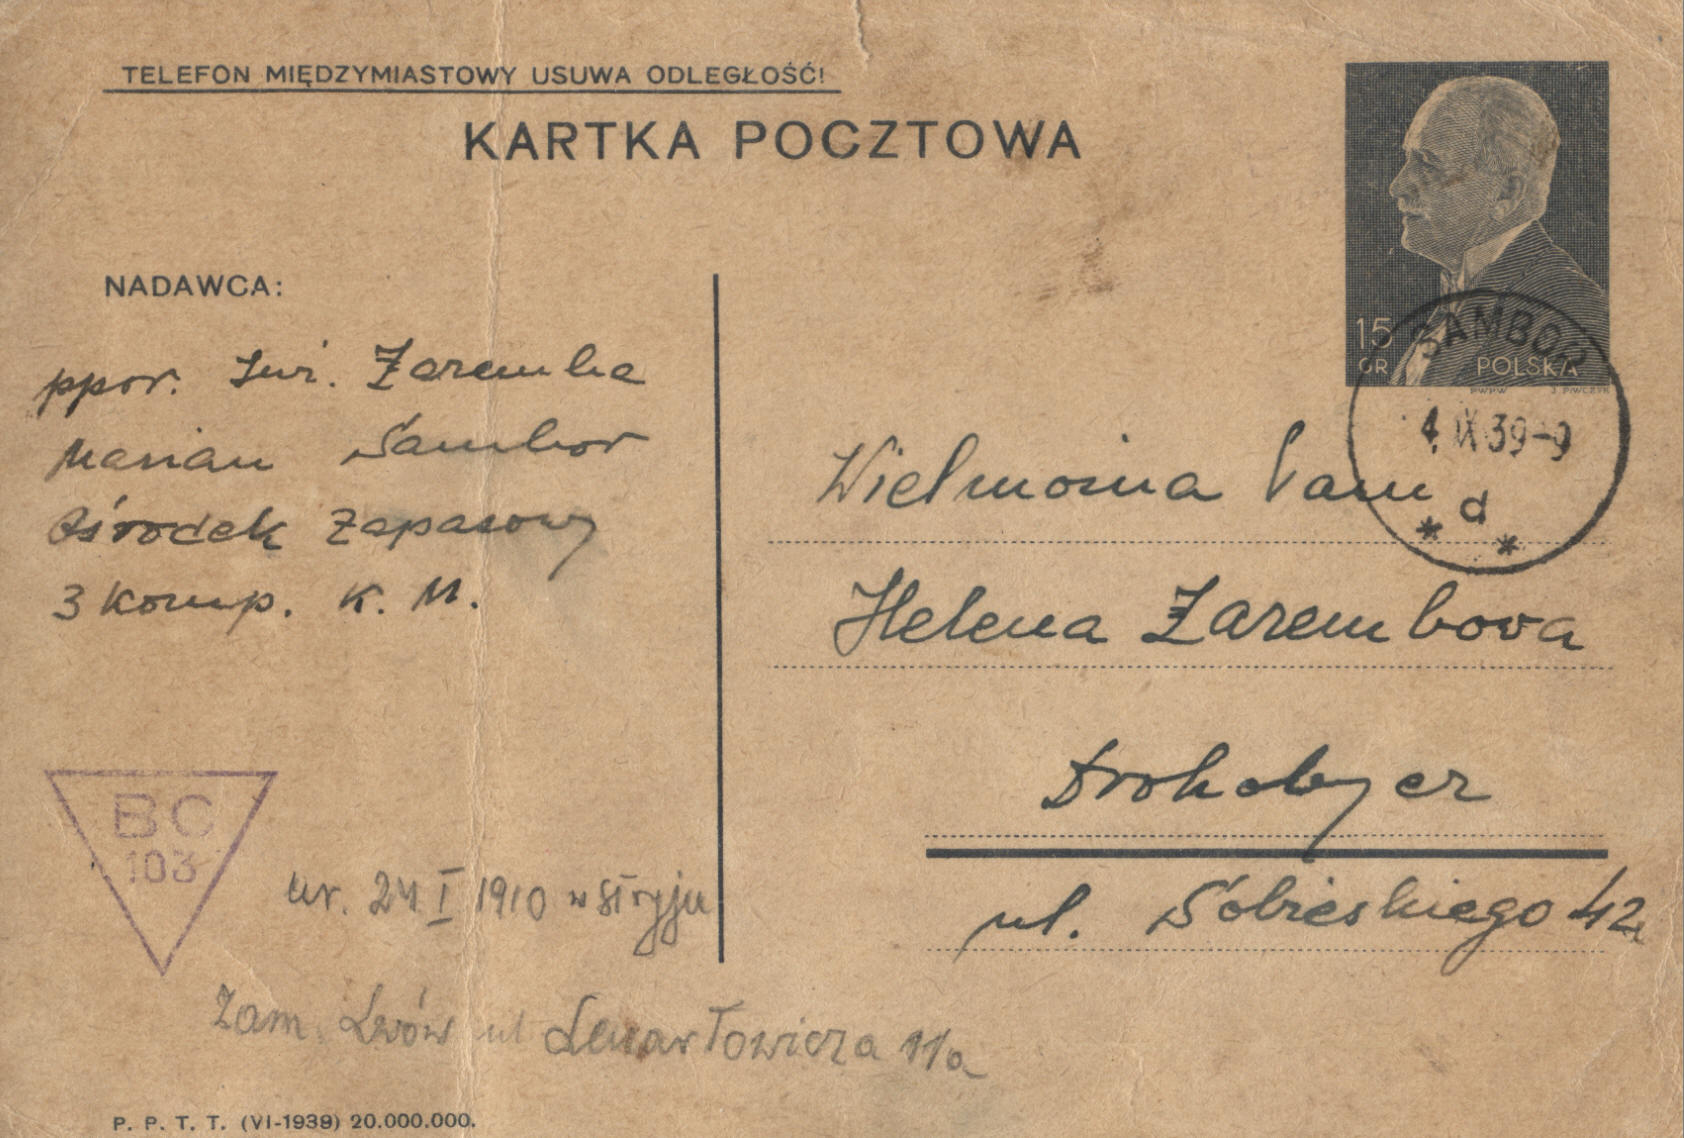 TELEFON MIĘDZYMIASTOWY USUWA ODLEGŁOŚĆ!
KARTKA POCZTOWA
15
GR
POLSKA
PWPW
SAMBOR
4. IX 39-9
d
* *
NADAWCA:
ppor. Inż. Zaremba
Marian Sambor
Ośrodek Zapasowy
3 Komp. K. M.
Wielmożna Pani
Helena Zarembova
Drohobycz
ul. Sobieskiego 42
BC
103
ur. 24 I 1910 w Stryju
Zam. Lwów ul Lenartowicza 11a
P. P. T. T. (VI-1939) 20.000.000.